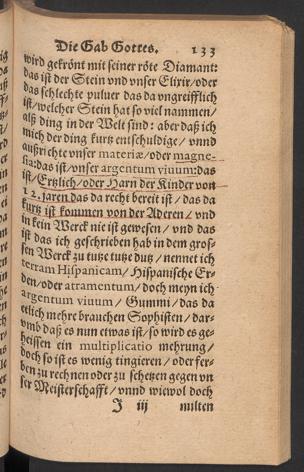 Die Gab Gottes. 133
wird gekrönt mit seiner röte Diamant:
das ist der Stein vnd vnser Elixir/oder
das schlechte puluer das da vngreifflich
ist/welcher Stein hat so viel nammen/
alß ding in der Welt sind: aber daß ich
mich der ding kurtz entschuldige/ vnnd
außrichte vnser materiæ/oder magne-
sia:das ist/vnser argentum viuum:das
ist/ oder Harn der Kinder von
12. jaren das da recht bereit ist / das da
kurtz ist kommen von der Aderen/ vnd
in kein Werck nie ist gewesen/ vnd das
ist das ich geschrieben hab in dem gros-
sen Werck zu tutze tutze dutz/ nennet ich
terram Hispanicam/ Hispänische Er-
den/oder atramentum/ doch meyn ich
argentum viuum/ Gummi/ das da
etlich mehre brauchen Sophisten/ dar-
vmb daß es nun etwas ist/so wird es ge-
heissen ein multiplicatio mehrung/
doch so ist es wenig tingieren/ oder fer-
ben zu rechnen oder zu schetzen gegen vn
ser Meisterschafft/ vnnd wievol doch
J iij milten